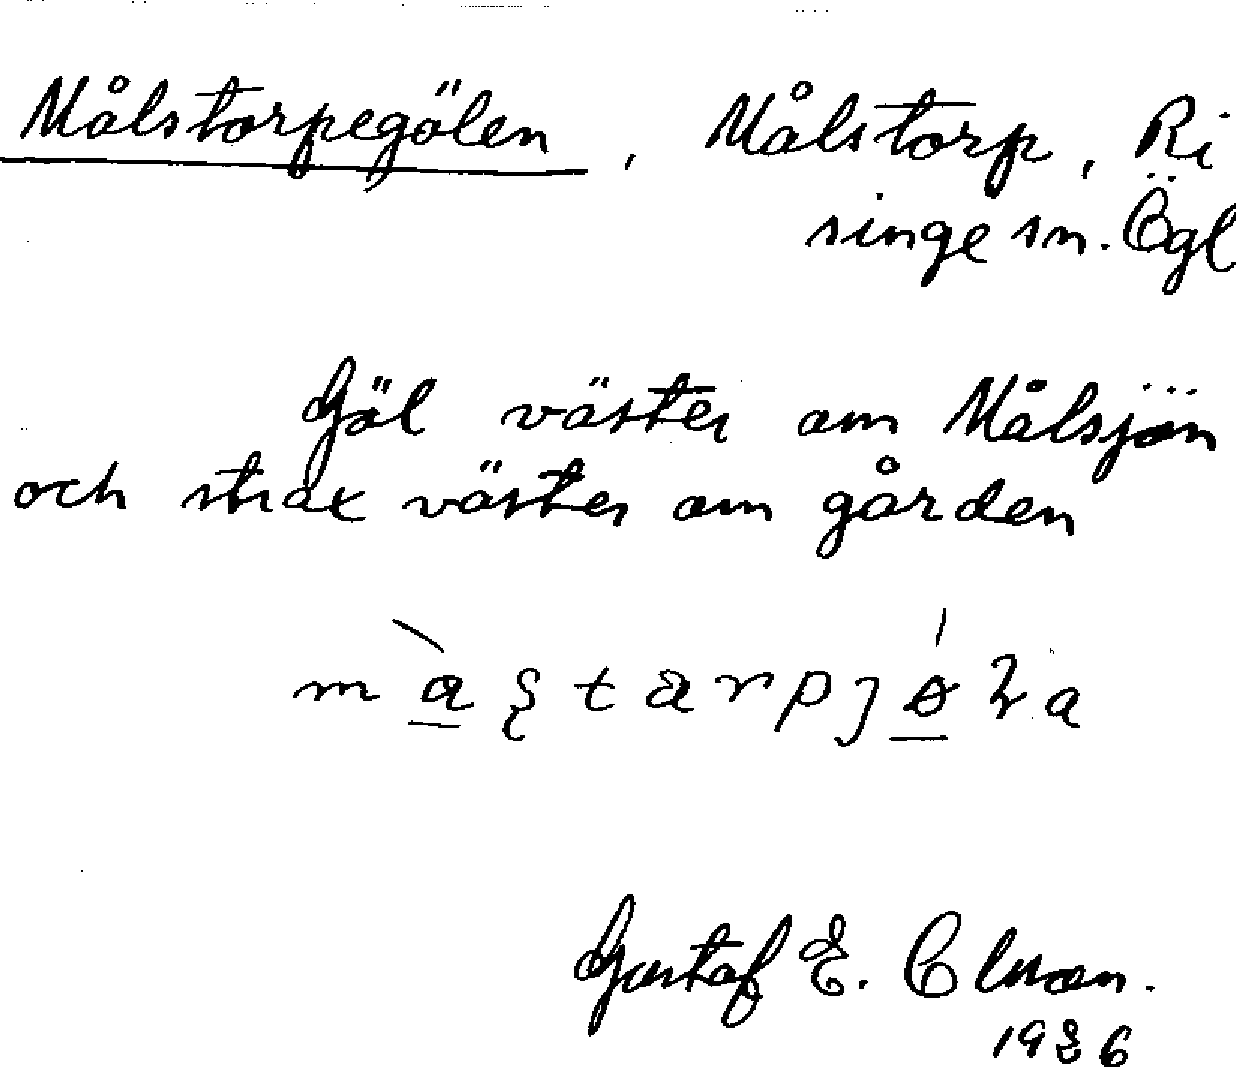 Målstorpegölen, Målstorp, Ri
singe sn. Ögl
Göl väster om Målsjön
och strax väster om gården
Gustaf E. Clman.
1936